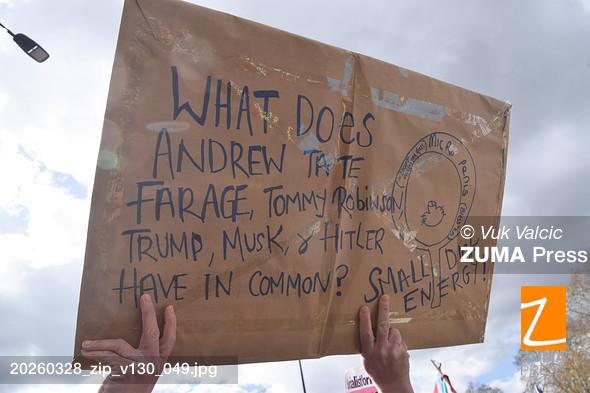 WHAT DOES
ANDREW TATE
FARAGE, TOMMY ROBINSON
TRUMP, MUSK, & HITLER
HAVE IN COMMON?
SMALL D
ENERGY!
MICRO PENIS
© Vuk Valcic
ZUMA Press
20260328_zip_v130_049.jpg